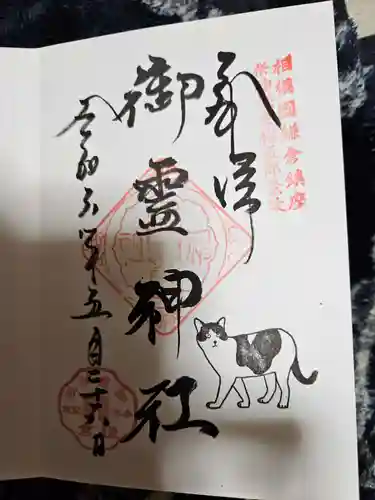 相模國鎌倉鎮座
奉拝
御霊神社
令和六年五月二十六日